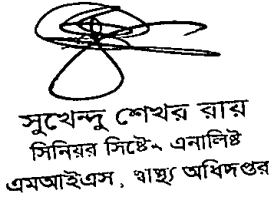 সুখেন্দু শেখর রায়
সিনিয়র সিষ্টেম এনালিষ্ট
এমআইএস, স্বাস্থ্য অধিদপ্তর